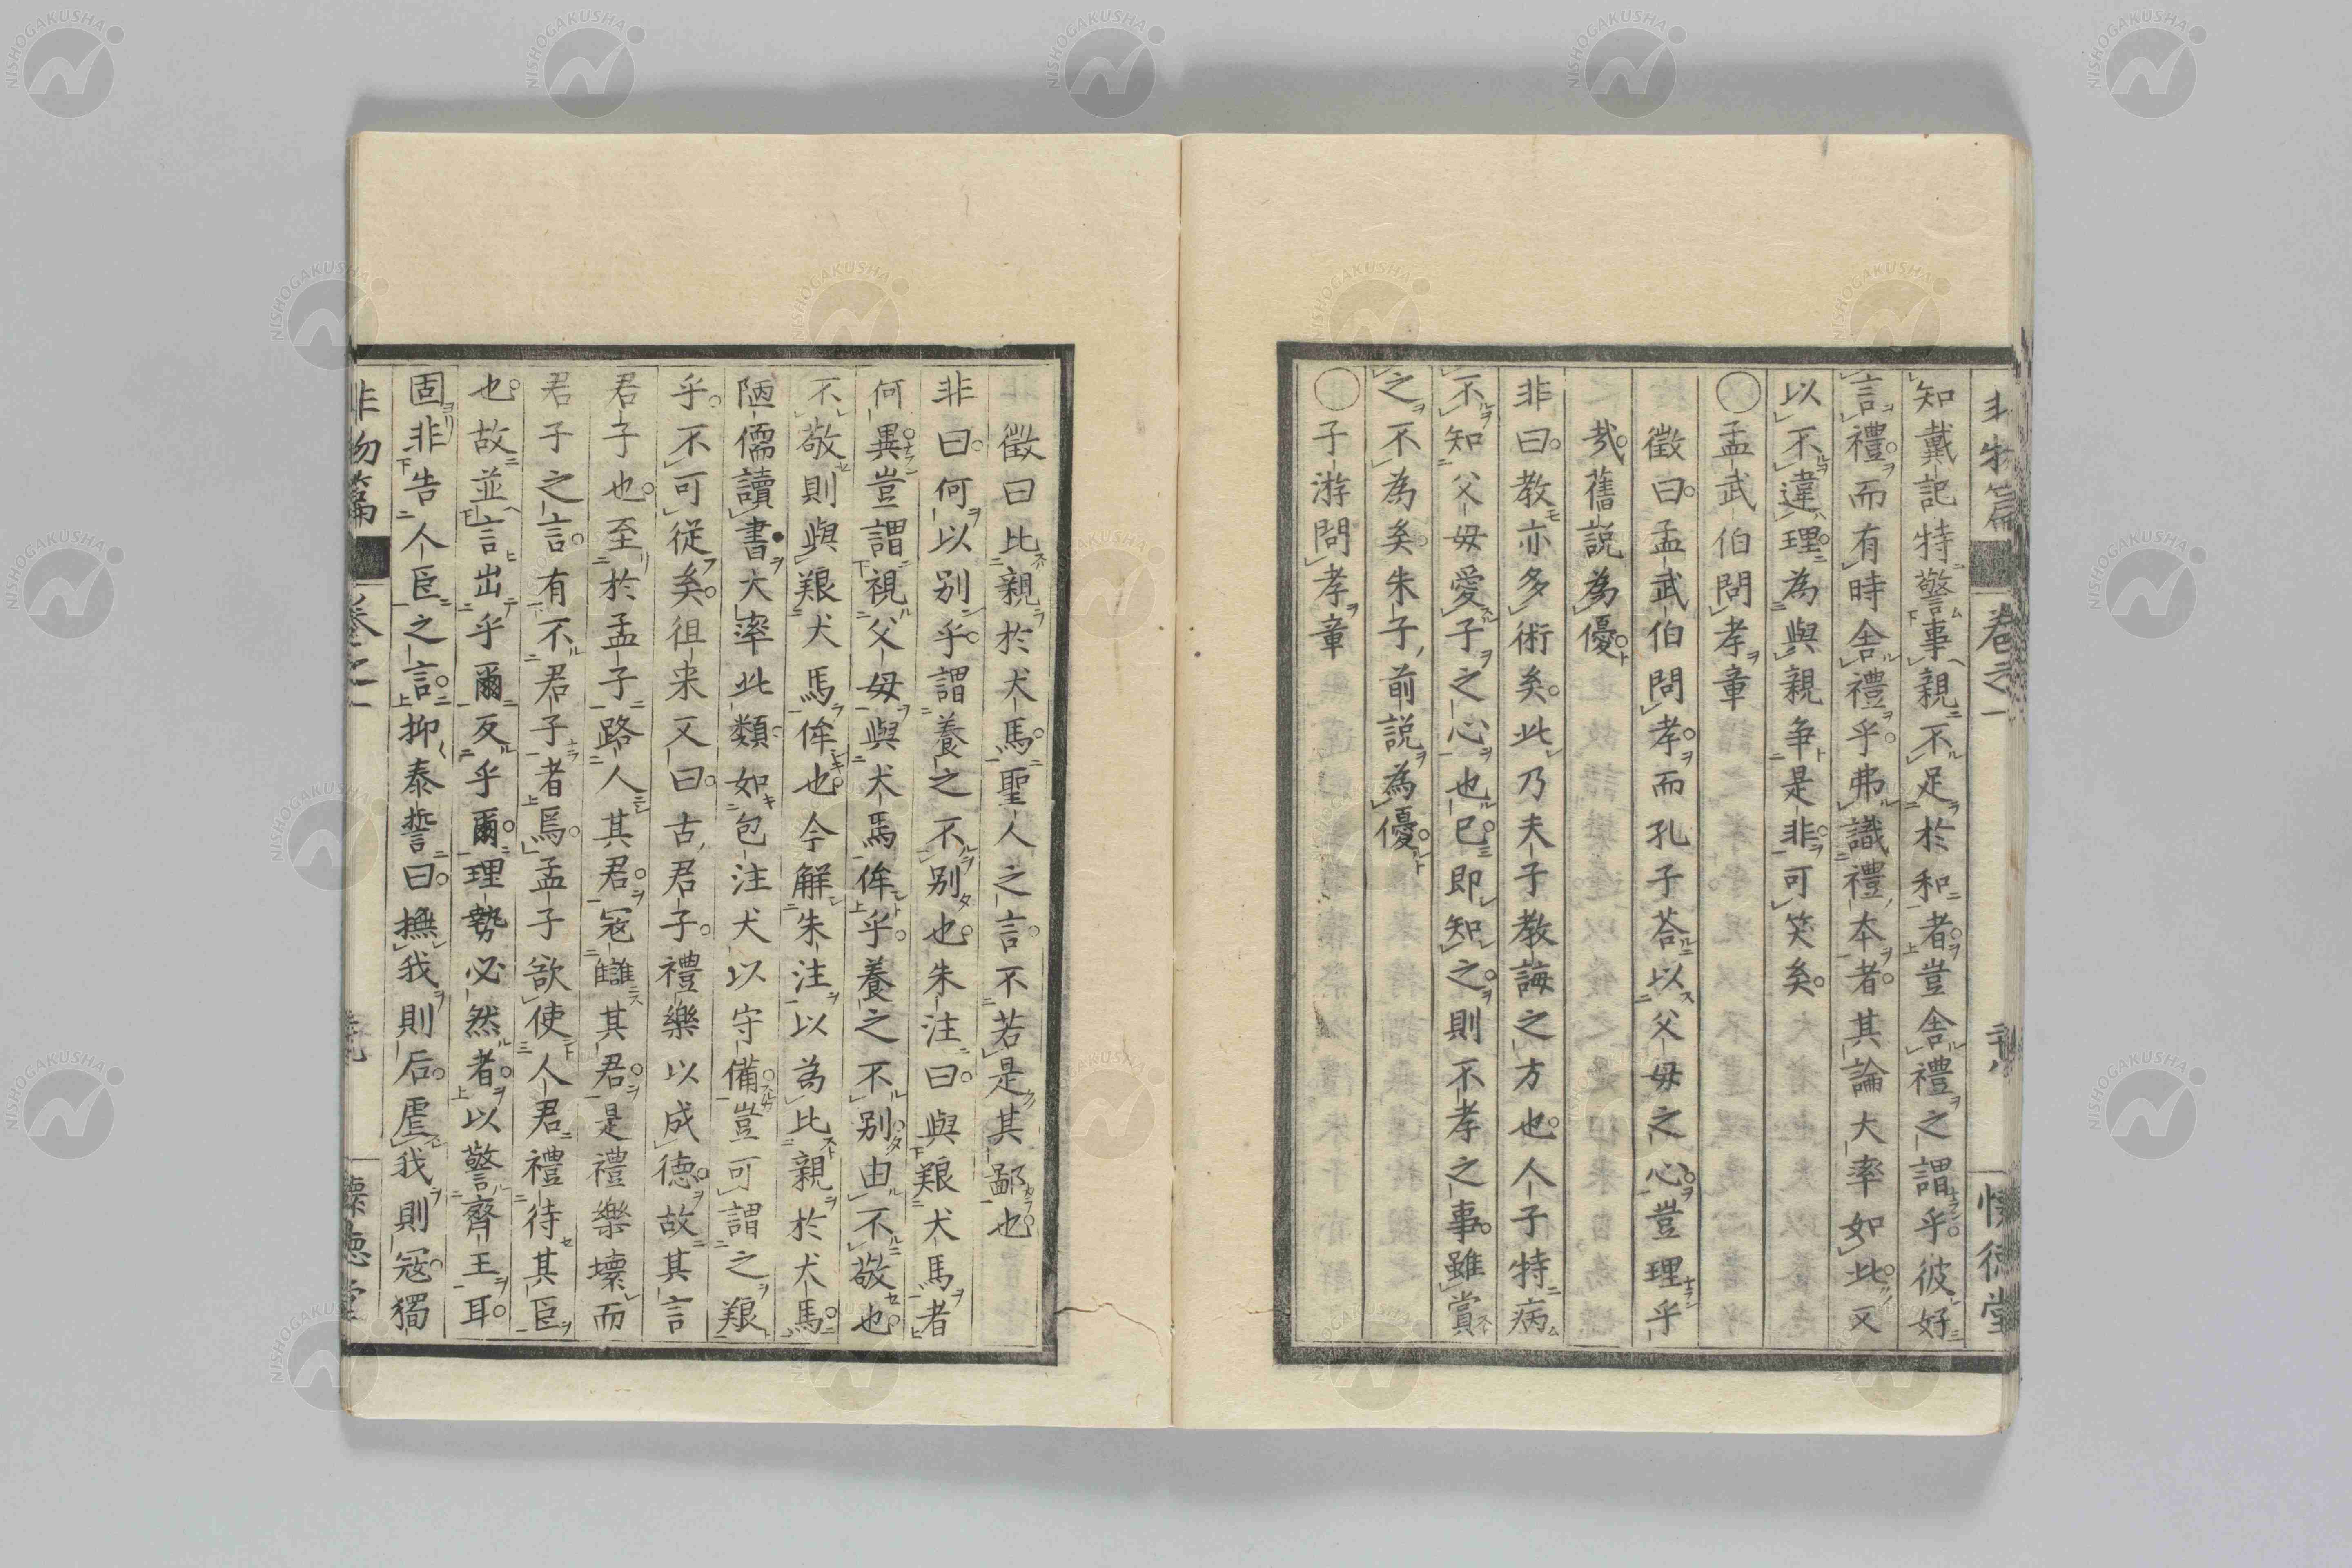 非物篇 卷之一 懐徳堂
知戴記特警事親不足於和者豈舎禮之謂乎彼好
言禮而有時舎禮乎弗識禮本者其論大率如此又
以不違理為與親争是非可笑矣
○孟武伯問孝章
徵曰孟武伯問孝而孔子荅以父母之心豈理乎
哉舊説為優
非曰教亦多術矣此乃夫子教誨之方也人子特病
不知父母愛子之心也已即知之則不孝之事雖賞
之不為矣朱子前説為優
○子游問孝章
徵曰比親於犬馬聖人之言不若是其鄙也
非曰何以别乎謂養之不别也朱注曰與養犬馬者
何異豈謂視父母與犬馬侔乎養之不别由不敬也
不敬則與養犬馬侔也今解朱注以為比親於犬馬
陋儒讀書大率此類如包注犬以守備豈可謂之養
乎不可從矣徂来又曰古君子禮樂以成徳故其言
君子也至於孟子路人其君冦讎其君是禮樂壊而
君子之言有不君子者焉孟子欲使人君禮待其臣
也故並言出乎爾反乎爾理勢必然者以警齊王耳
固非告人臣之言抑泰誓曰撫我則后虐我則冦獨
非物篇 卷之一 懐徳堂
NISHOGAKUSHA